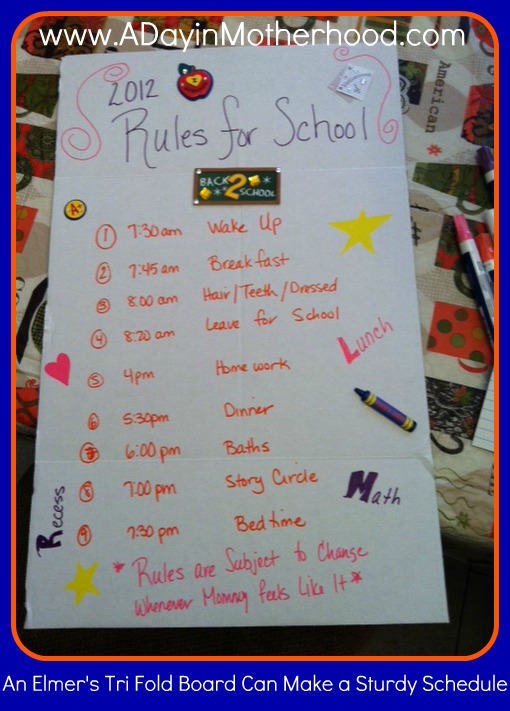 www.ADayinMotherhood.com
American
2012
Rules for School
BACK 2 SCHOOL
A+
1 7:30 am Wake Up
2 7:45 am Breakfast
3 8:00 am Hair/Teeth/Dressed
4 8:20 am Leave for School
Lunch
5 4pm Home work
6 5:30pm Dinner
7 6:00 pm Baths
8 7:00 pm Story Circle
Math
Recess
9 7:30 pm Bedtime
* Rules are Subject to Change
Whenever Mommy Feels Like It *
An Elmer's Tri Fold Board Can Make a Sturdy Schedule